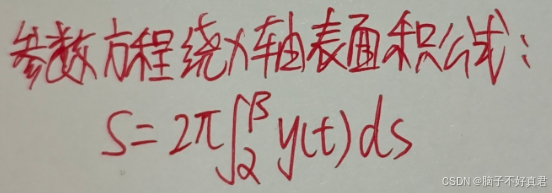 参数方程绕x轴表面积公式：
S=2π∫_α^β y(t)ds
CSDN @脑子不好真君